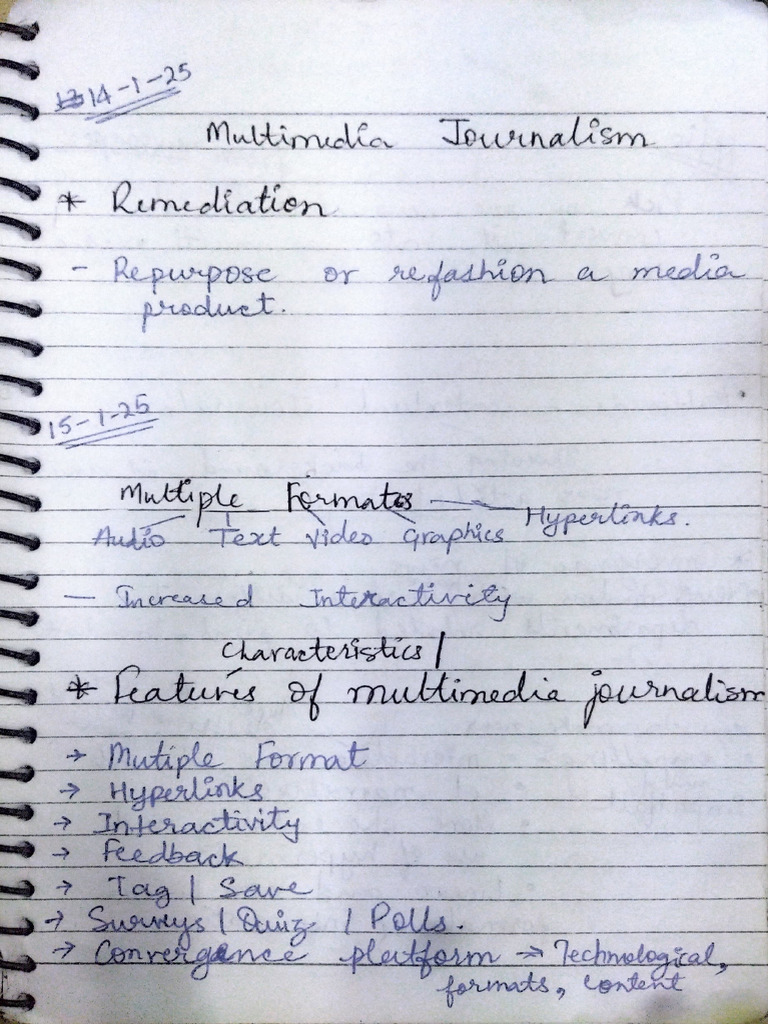 14-1-25
Multimedia Journalism
* Remediation
- Repurpose or refashion a media
product.
15-1-25
Multiple Formats
Audio Text Video Graphics Hyperlinks.
- Increased Interactivity
Characteristics/
* Features of multimedia journalism
→ Mutiple Format
→ Hyperlinks
→ Interactivity
→ Feedback
→ Tag / Save
→ Surveys / Quiz / Polls.
→ Convergence platform → Technological,
formats, content